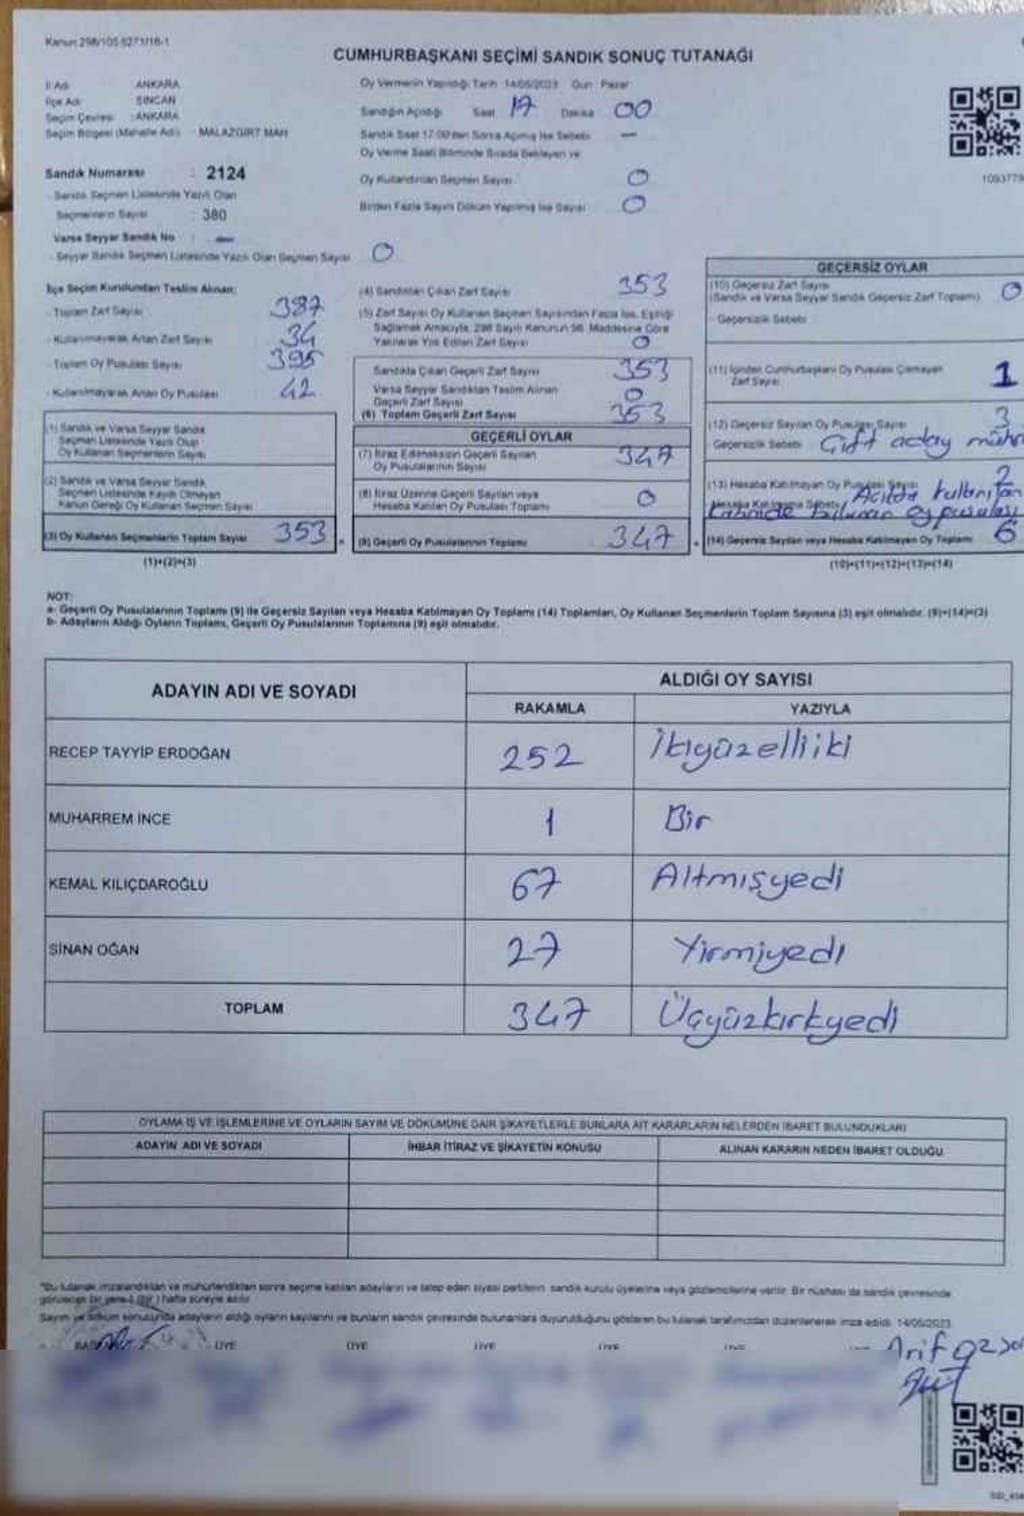 Kanun 298/105 6271/16-1
CUMHURBAŞKANI SEÇİMİ SANDIK SONUÇ TUTANAĞI
İl Adı : ANKARA
İlçe Adı : SİNCAN
Seçim Çevresi : ANKARA
Seçim Bölgesi (Mahalle Adı) : MALAZGİRT MAH
Oy Vermenin Yapıldığı Tarih 14/05/2023 Gün : Pazar
Sandığın Açıldığı Saat 17 Dakika 00
Sandık Saat 17.00'den Sonra Açılmış İse Sebebi –
Oy Verme Saati Bitiminde Sırada Bekleyen ve
Oy Kullandırılan Seçmen Sayısı : 0
Birden Fazla Sayım Döküm Yapılmış İse Sayısı 0
Sandık Numarası : 2124
- Sandık Seçmen Listesinde Yazılı Olan
Seçmenlerin Sayısı : 380
Varsa Seyyar Sandık No : –
- Seyyar Sandık Seçmen Listesinde Yazılı Olan Seçmen Sayısı 0
İlçe Seçim Kurulundan Teslim Alınan;
- Toplam Zarf Sayısı 387
- Kullanılmayarak Artan Zarf Sayısı 34
- Toplam Oy Pusulası Sayısı 395
- Kullanılmayarak Artan Oy Pusulası 42
(1) Sandık ve Varsa Seyyar Sandık
Seçmen Listesinde Yazılı Olup
Oy Kullanan Seçmenlerin Sayısı
(2) Sandık ve Varsa Seyyar Sandık
Seçmen Listesinde Kaydı Olmayan
Kanun Gereği Oy Kullanan Seçmen Sayısı
(3) Oy Kullanan Seçmenlerin Toplam Sayısı 353
(1)+(2)=(3)
(4) Sandıktan Çıkan Zarf Sayısı 353
(5) Zarf Sayısı Oy Kullanan Seçmen Sayısından Fazla İse, Eşitliği
Sağlamak Amacıyla, 298 Sayılı Kanunun 98. Maddesine Göre
Yakılarak Yok Edilen Zarf Sayısı 0
Sandıkta Çıkan Geçerli Zarf Sayısı 353
Varsa Seyyar Sandıktan Teslim Alınan
Geçerli Zarf Sayısı 0
(6) Toplam Geçerli Zarf Sayısı 353
GEÇERLİ OYLAR
(7) İtiraz Edilmeksizin Geçerli Sayılan
Oy Pusulalarının Sayısı 347
(8) İtiraz Üzerine Geçerli Sayılan veya
Hesaba Katılan Oy Pusulası Toplamı 0
(9) Geçerli Oy Pusulalarının Toplamı 347
GEÇERSİZ OYLAR
(10) Geçersiz Zarf Sayısı
(Sandık ve Varsa Seyyar Sandık Geçersiz Zarf Toplamı) 0
- Geçersizlik Sebebi
(11) İçinden Cumhurbaşkanı Oy Pusulası Çıkmayan
Zarf Sayısı 1
(12) Geçersiz Sayılan Oy Pusulası Sayısı 3
Geçersizlik Sebebi Çift aday mühr
(13) Hesaba Katılmayan Oy Pusulası Sayısı 2
Hesaba Katılmama Sebebi kullanılan
oy pusulası
(14) Geçersiz Sayılan veya Hesaba Katılmayan Oy Toplamı 6
(10)+(11)+(12)+(13)=(14)
NOT:
a- Geçerli Oy Pusulalarının Toplamı (9) ile Geçersiz Sayılan veya Hesaba Katılmayan Oy Toplamı (14) Toplamları, Oy Kullanan Seçmenlerin Toplam Sayısına (3) eşit olmalıdır. (9)+(14)=(3)
b- Adayların Aldığı Oyların Toplamı, Geçerli Oy Pusulalarının Toplamına (9) eşit olmalıdır.
ADAYIN ADI VE SOYADI
ALDIĞI OY SAYISI
RAKAMLA YAZIYLA
RECEP TAYYİP ERDOĞAN 252 İkiyüzelliiki
MUHARREM İNCE 1 Bir
KEMAL KILIÇDAROĞLU 67 Altmışyedi
SİNAN OĞAN 27 Yirmiyedi
TOPLAM 347 Üçyüzkırkyedi
OYLAMA İŞ VE İŞLEMLERİNE VE OYLARIN SAYIM VE DÖKÜMÜNE DAİR ŞİKAYETLERLE BUNLARA AİT KARARLARIN NELERDEN İBARET BULUNDUKLARI
ADAYIN ADI VE SOYADI İHBAR İTİRAZ VE ŞİKAYETİN KONUSU ALINAN KARARIN NEDEN İBARET OLDUĞU
*Bu tutanak imzalandıktan ve mühürlendikten sonra seçime katılan adayların ve talep eden siyasi partilerin, sandık kurulu üyelerine veya gözlemcilerine verilir. Bir nüshası da sandık çevresinde
görüleceği bir yere 1 (bir) hafta süreyle asılır.
Sayım ve döküm sonucunda adayların aldığı oyların sayılarını ve bunların sandık çevresinde bulunanlara duyurulduğunu gösteren bu tutanak tarafımızdan düzenlenerek imza edildi. 14/05/2023
ÜYE ÜYE ÜYE ÜYE ÜYE
Arif